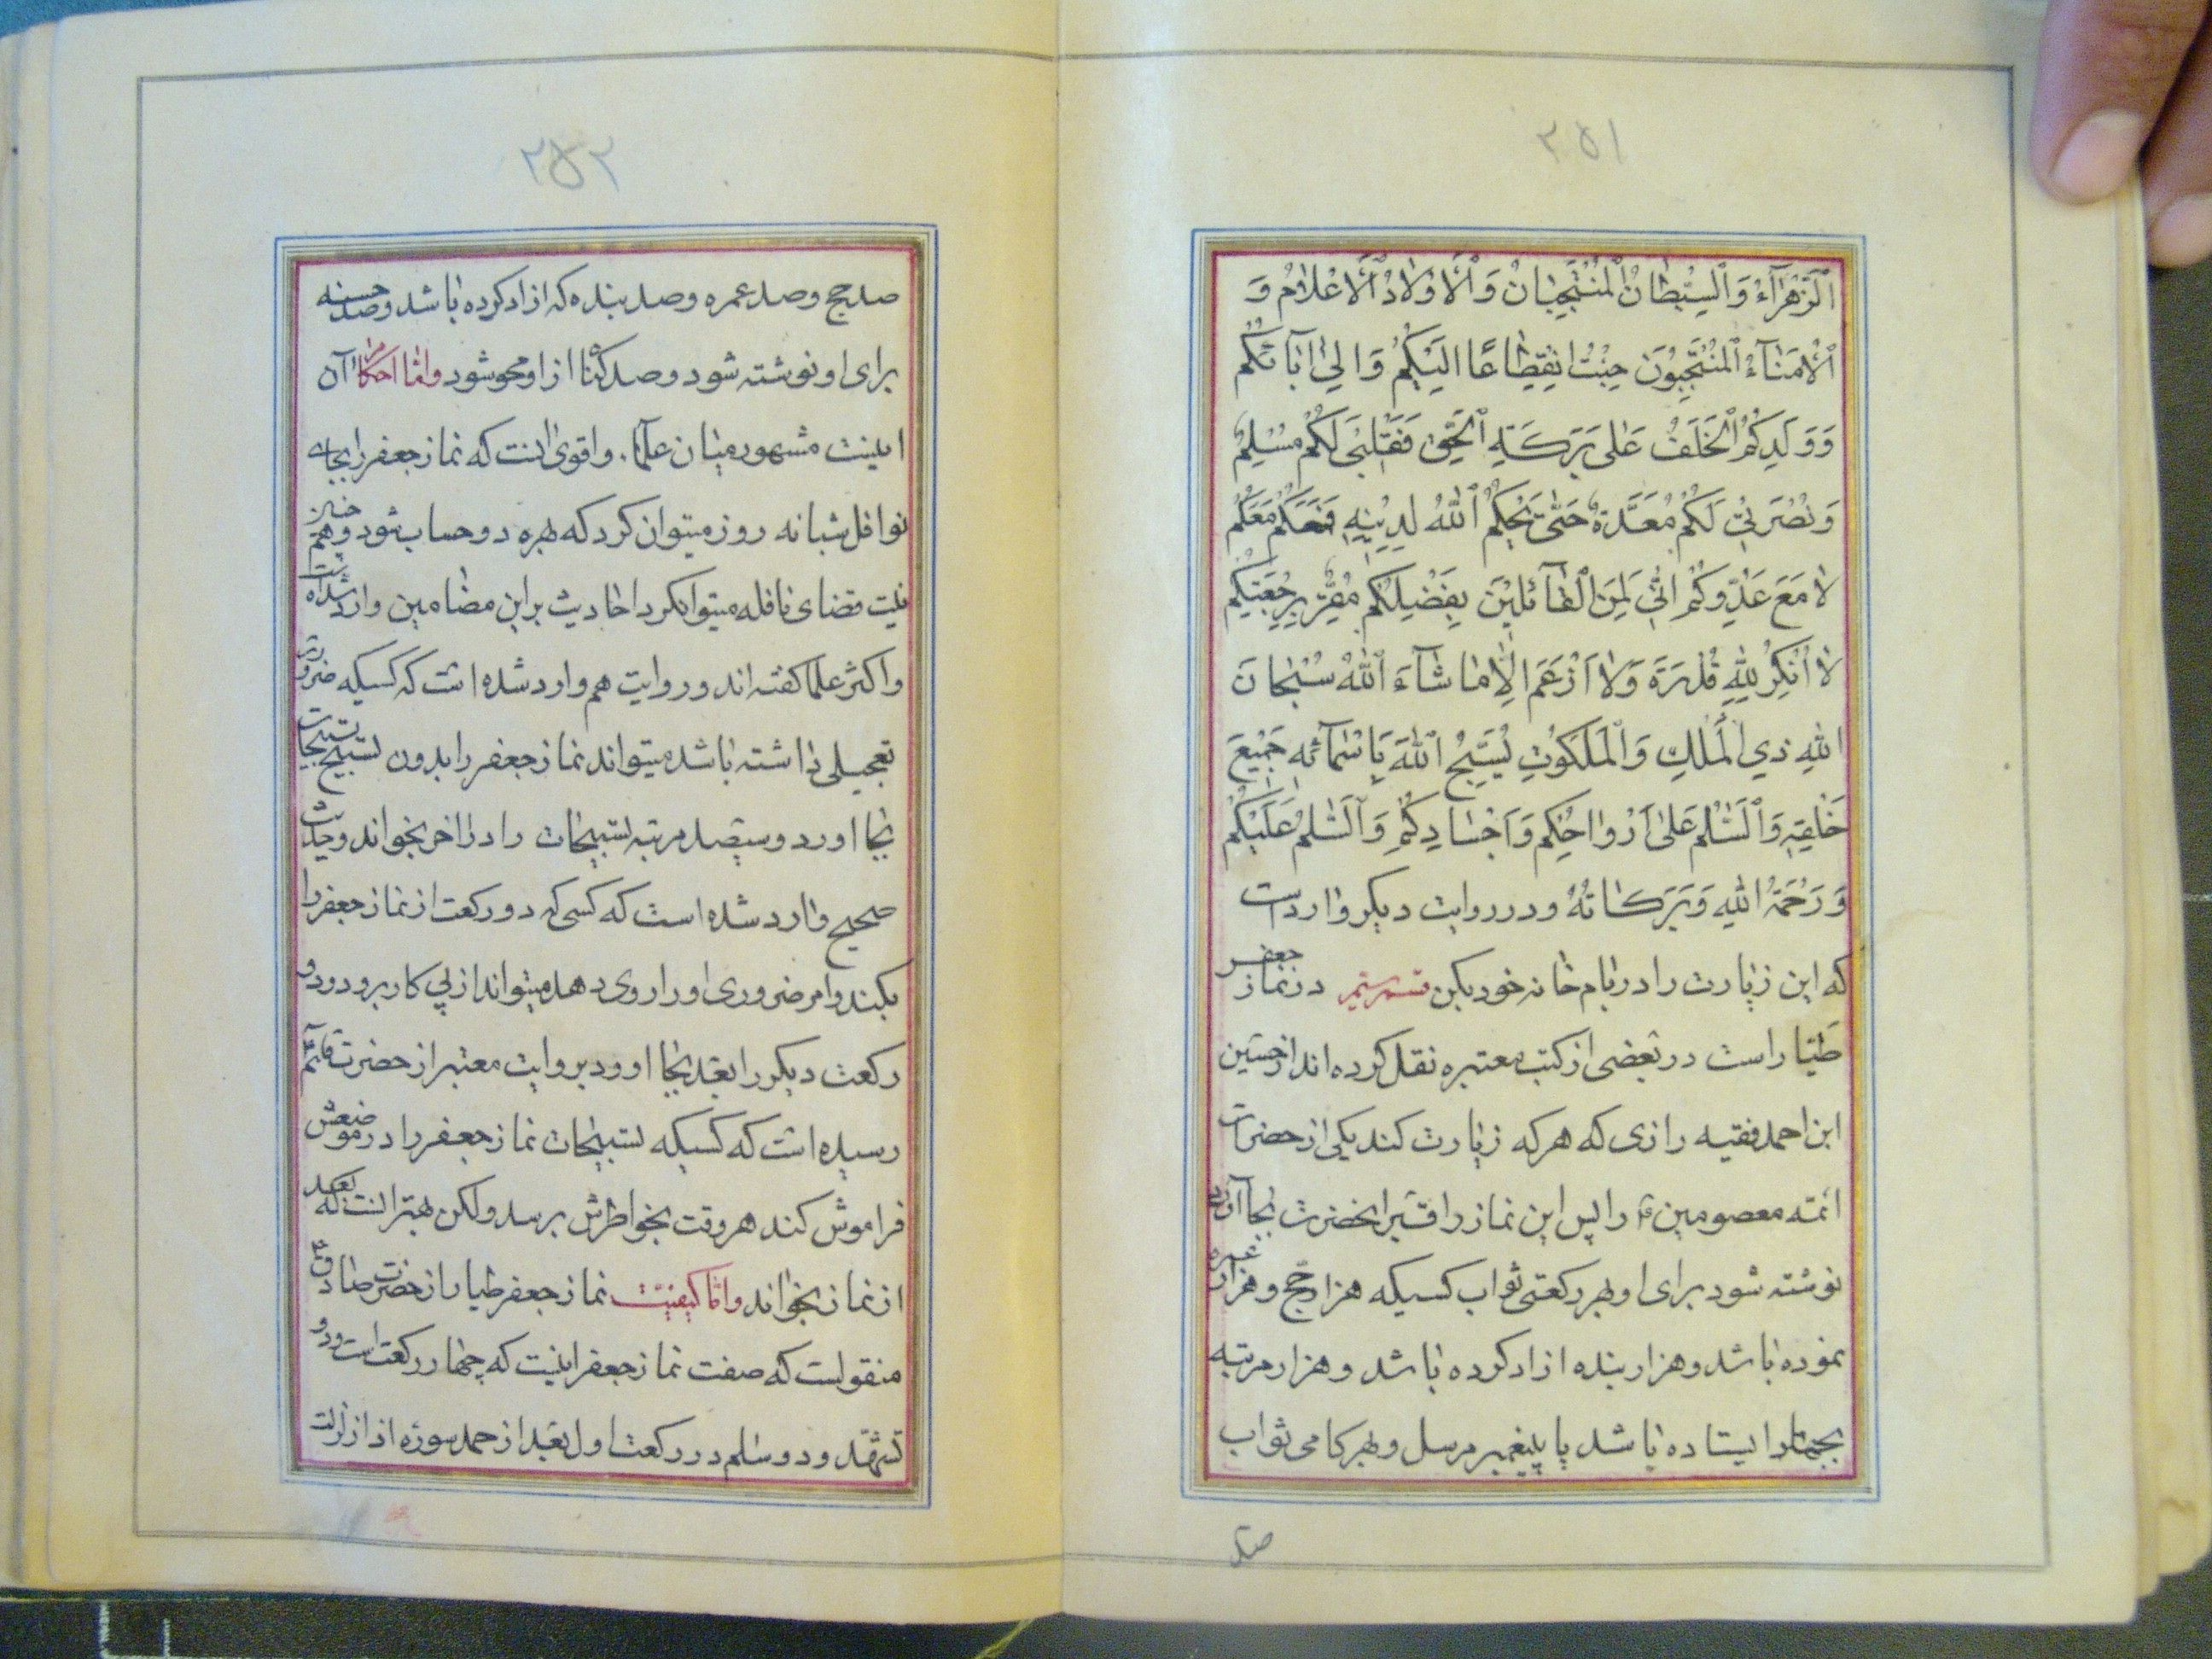 ۲۵۱
اَلزَّهْرَآءُ وَالسِّبْطَانِ الْمُنْتَجَبَانِ وَالْاَوْلَادُ الْاَعْلَامُ وَ
الْاُمَنَآءُ الْمُنْتَجَبُونَ جِئْتُ انْقِطَاعًا اِلَيْكُمْ وَاِلىٰ اٰبَآئِكُمْ
وَوَلَدِكُمُ الْخَلَفِ عَلىٰ بَرَكَةِ الْحَقِّ فَقَلْبِي لَكُمْ مُسْلِمٌ
وَنُصْرَتِي لَكُمْ مُعَدَّةٌ حَتّٰى يَحْكُمَ اللّٰهُ لِدِينِهِ فَمَعَكُمْ مَعَكُمْ
لَا مَعَ عَدُوِّكُمْ اِنِّي لَمِنَ الْقَآئِلِينَ بِفَضْلِكُمْ مُقِرٌّ بِرَجْعَتِكُمْ
لَا اُنْكِرُ لِلّٰهِ قُدْرَةً وَلَا اَزْعَمُ اِلَّا مَا شَآءَ اللّٰهُ سُبْحَانَ
اللّٰهِ ذِي الْمُلْكِ وَالْمَلَكُوتِ يُسَبِّحُ اللّٰهَ بِاَسْمَآئِهِ جَمِيعُ
خَلْقِهِ وَالسَّلٰمُ عَلىٰ اَرْوَاحِكُمْ وَاَجْسَادِكُمْ وَالسَّلٰمُ عَلَيْكُمْ
وَرَحْمَةُ اللّٰهِ وَبَرَكَاتُهُ ودر روایت دیکر وارداست
که این زیارت را در بام خانه خود بکن در نماز جعفر
طیّار است در بعضی از کتب معتبره نقل کرده اند از حسین
ابن احمد فقیه رازی که هرکه زیارت کند یکی از حضرات
ائمّه معصومین ع را پس این نماز را قبر انحضرت بجا آورد
نوشته شود برای او بهر رکعتی ثواب کسیکه هزار حج و هزار عمره
نموده باشد و هزار بنده ازاد کرده باشد و هزار مرتبه
بجهاد ایستاده باشد با پیغمبر مرسل و بهر کامی ثواب
صد
۲۵۲
صد حج وصد عمره وصد بنده که ازاد کرده باشد وصد حسنه
برای او نوشته شود وصد کناه از او محو شود وامّا احکام آن
اینست مشهور میان علما. واقوی انست که نماز جعفر را بجای
نوافل شبانه روز میتوان کرد که بهره دو حساب شود وهم چنین
نیّت قضای نافله میتوانکرد احادیث بر این مضامین وارد شده است
واکثر علما کفته اند وروایت هم وارد شده است که کسیکه ضرورت
تعجیلی داشته باشد میتواند نماز جعفر را بدون تسبیح تسبیحات
بجا اورد وسیصد مرتبه تسبیحات را در اخر بخواند وحدیث
صحیح وارد شده است که کسی که دو رکعت از نماز جعفر را
بکند وامر ضروری او را روی دهد میتواند از پی کار برود ودو
رکعت دیکر را بعد بجا اورد بروایت معتبر از حضرت قائم
رسیده است که کسیکه تسبیحات نماز جعفر را در موضعش
فراموش کند هر وقت بخواطرش برسد ولکن بهتر انست که بعد
از نماز بخواند وامّا کیفیّت نماز جعفر طیار از حضرت صادق ع
منقولست که صفت نماز جعفر اینست که چهار رکعت است ودو
تشهّد ودو سلام در رکعت اول بعد از حمد سوره اذا زلزلت